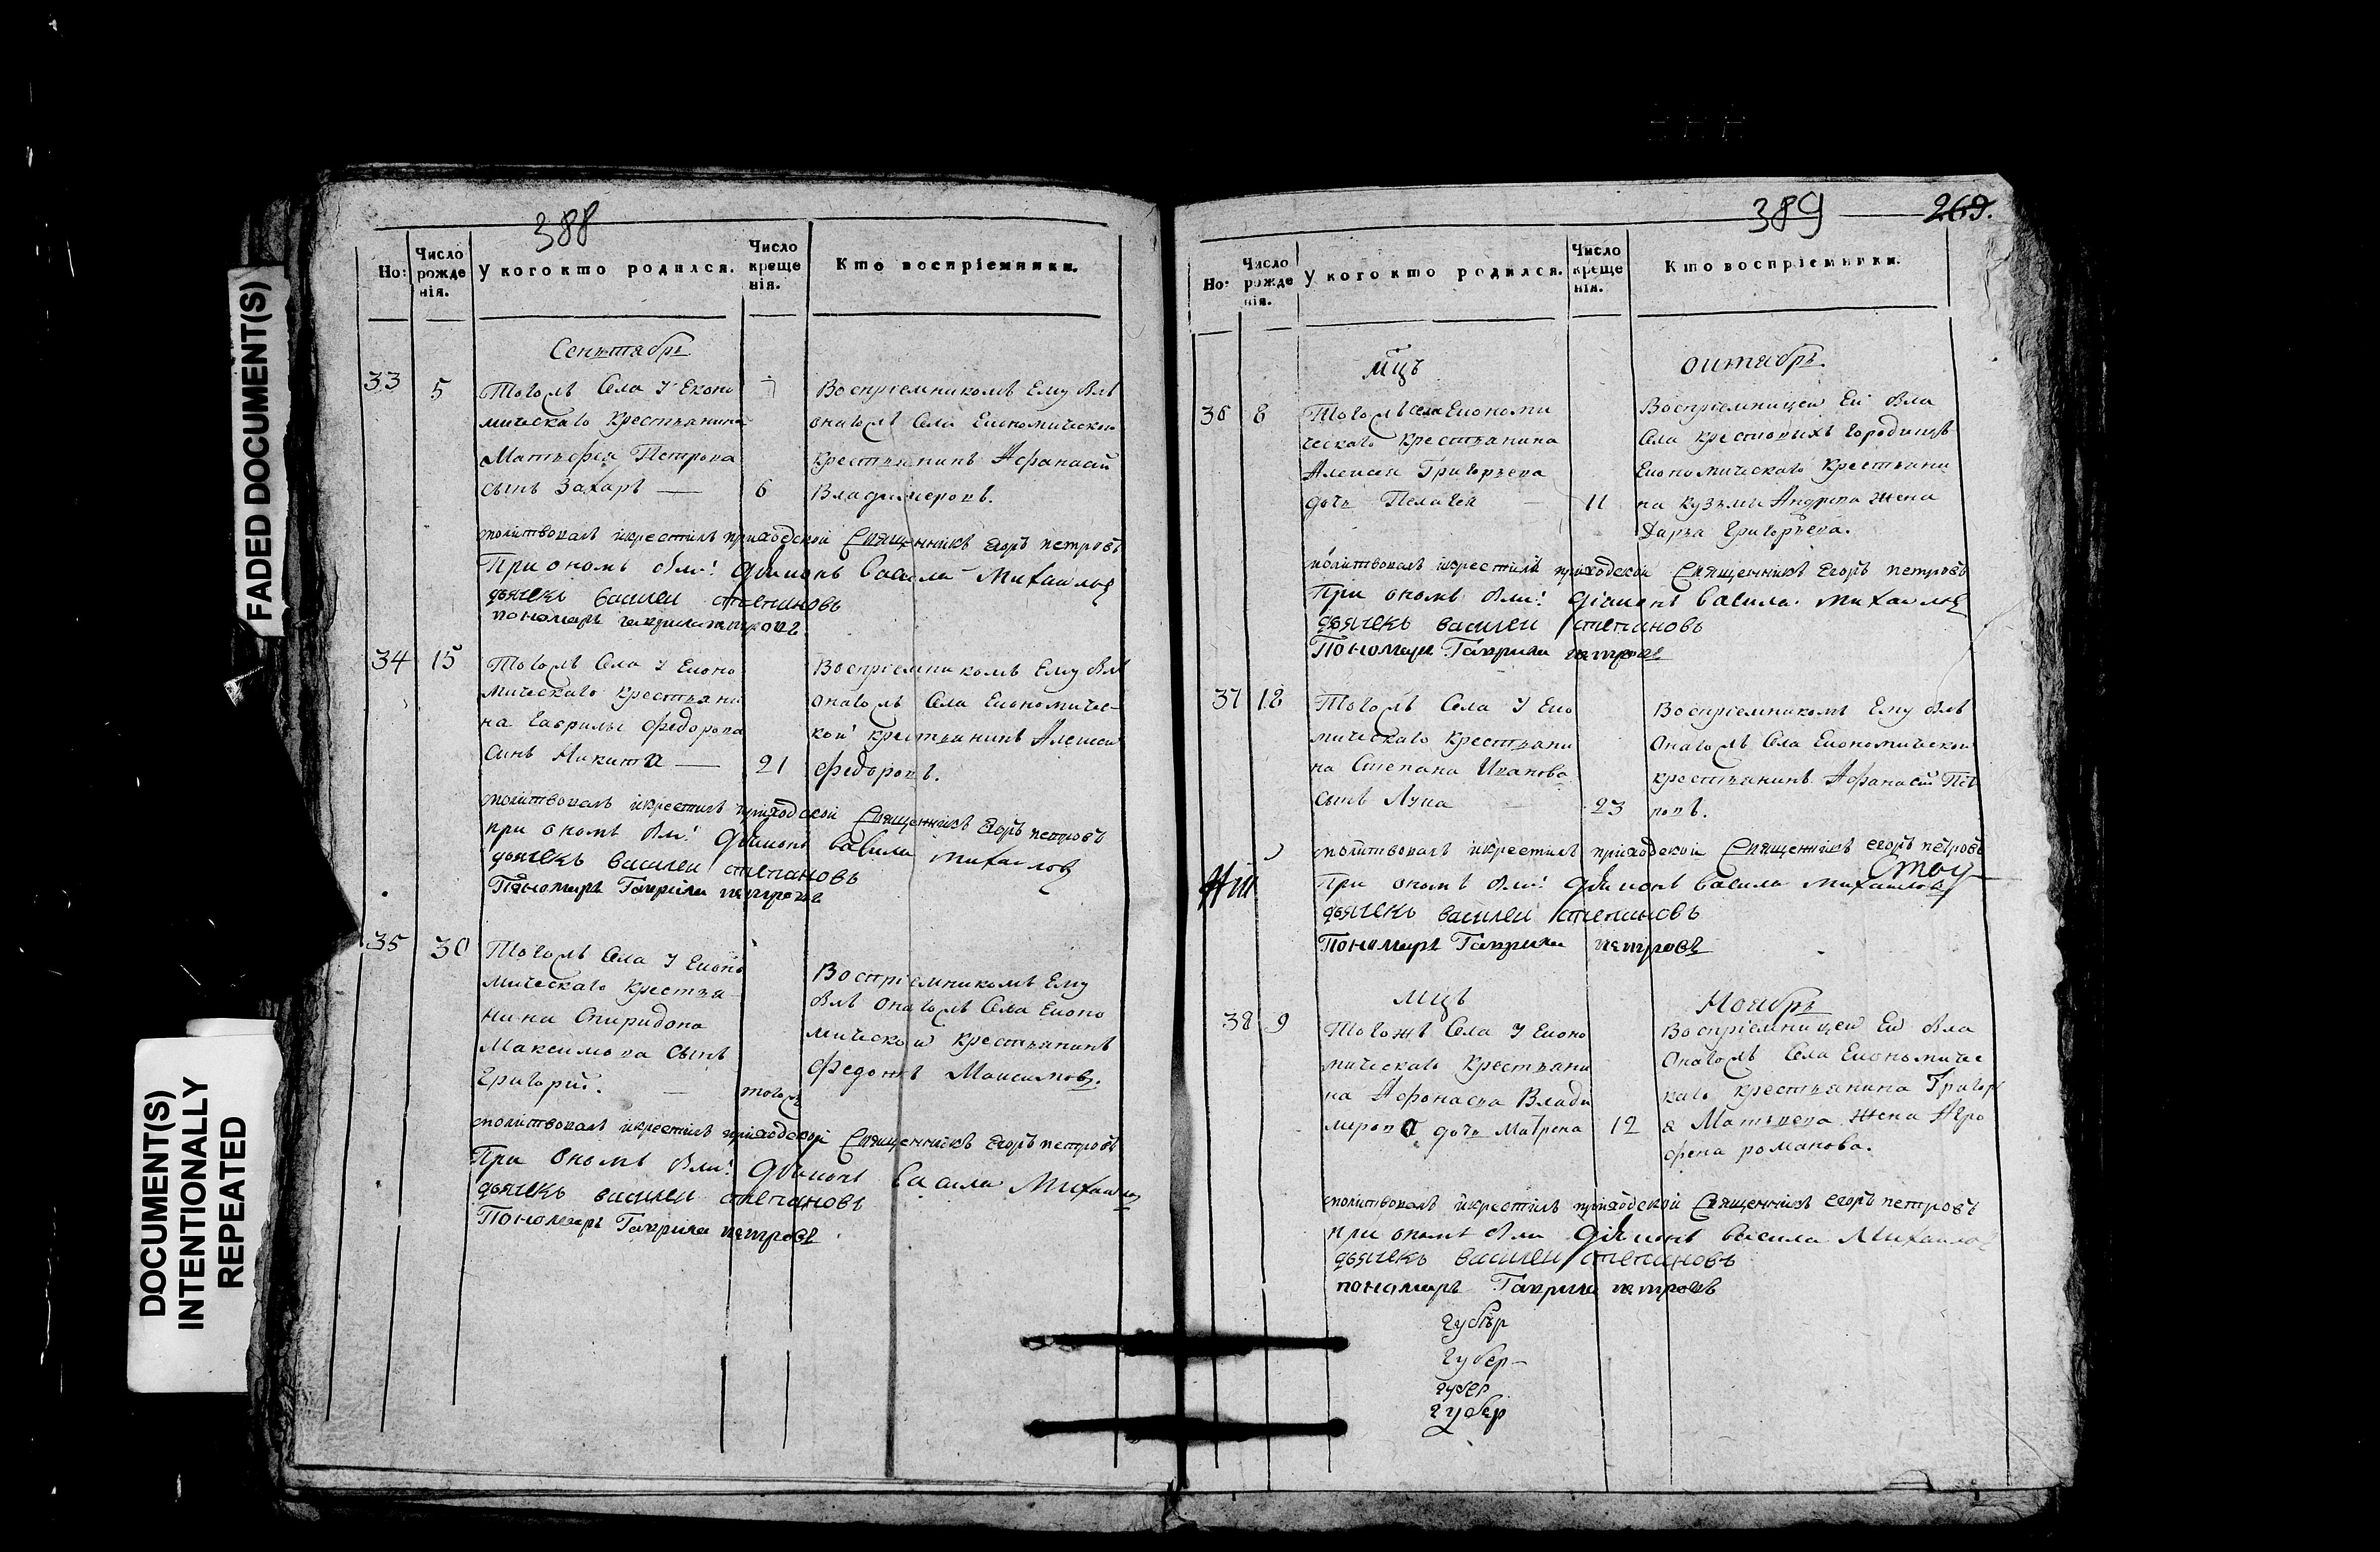 FADED DOCUMENT(S)
DOCUMENT(S)
INTENTIONALLY
REPEATED
388
Но:
Число рожде нія.
У кого кто родился.
Число креще нія.
Кто воспріемники.
Сентябрь
33
5
Тогожъ Села У Еконо
мическаго крестьянина
Матвѣея Петрова
сынъ Захаръ
6
Воспріемникомъ Ему былъ
онагожъ Села Економической
крестьянинъ Афанасій
Владимеровъ.
молитвовалъ икрестилъ приходской Священникъ Егоръ петровъ
При ономъ были: діаконъ Васила Михаилов
дьячекъ василеи степановъ
пономарь гаврила петровъ
34
15
Тогожъ Села У Еконо
мическаго крестьяни
на Гаврилы Федорова
Сынъ Никита
21
Воспріемникомъ Ему былъ
онагожъ Села Економичес
кой крестьянинъ Алексей
Федоровъ.
молитвовалъ икрестилъ приходской Священникъ Егоръ петровъ
при ономъ были: діаконъ Васила Михаилов
дьячекъ василеи степановъ
Пономарь Гаврила петровъ
35
30
Тогожъ Села У Еконо
мическаго крестья
нина Спиридона
Максимова Сынъ
Григорий.
тогожъ
Воспріемникомъ Ему
былъ онагожъ Села Еконо
мической крестьянинъ
Федотъ Максимовъ.
молитвовалъ икрестилъ приходской Священникъ Егоръ петровъ
При Ономъ были: діаконъ Васила Михаилов
дьячекъ василеи степановъ
Пономарь Гаврила петровъ
389
269.
Но:
Число рожде нія.
У кого кто родился.
Число креще нія.
Кто воспріемники.
мцъ
октябрь.
36
8
Тогожъ села Економи
ческаго крестьянина
Алексея Григорьева
дочь Пелагея
11
Воспріемницею Ей была
Села крестовыхъ городищъ
Економическаго крестьяни
на кузьмы Андрева жена
Дарья Григорьева.
молитвовалъ икрестилъ приходской Священникъ Егоръ петровъ
При ономъ были: діаконъ Васила Михаилов
дьячекъ василеи степановъ
Пономарь Гаврила петровъ
37
18
Тогожъ Села У Еко
мическаго крестьяни
на Степана Иванова
Сынъ Лука
23
Воспріемникомъ Ему былъ
Онагожъ Села Економической
крестьянинъ Афанасій Пет
ровъ.
молитвовалъ икрестилъ приходской Священникъ егоръ петровъ
При ономъ были: діаконъ Васила Михаилов
дьячекъ василеи степановъ
Пономарь Гаврила петровъ
мцъ
Ноябрь
38
9
Тогожъ Села У Еконо
мическаго крестьяни
на Афонасья Влади
мерова дочь Матрена
12
Воспріемницею Ей была
Онагожъ Села Економичес
каго крестьянина Григорь
я Матвеева жена Агро
фена романова.
молитвовалъ икрестилъ приходской Священникъ егоръ петровъ
при ономъ были діаконъ васила Михаилов
дьячекъ василеи степановъ
пономарь Гаврила петровъ
губѣр
губер-
губер
губер